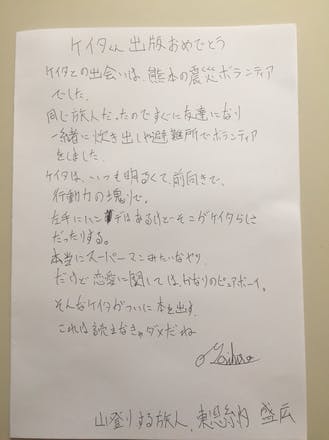 ケイタくん出版おめでとう
ケイタとの出会いは、熊本の震災ボランティア
でした.
同じ旅人だったのですぐに友達になり
一緒に炊き出しや避難所でボランティア
をしました.
ケイタは、いつも明るくて、前向きで、
行動力の塊りで。
左手にハンデはあるけどそこがケイタらしさ
だったりする。
本当にスーパーマンみたいなやり
だけど恋愛に関しては、かなりのピュアボーイ。
そんなケイタがついに本を出す.
これは読まなきゃダメだね
山登りする旅人、東恩納 盛広